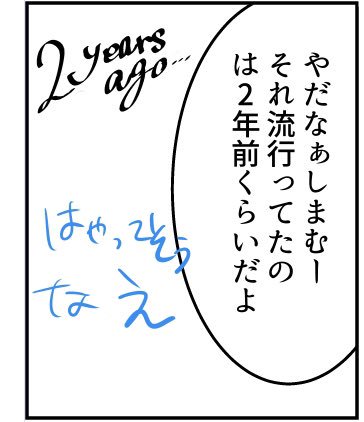 やだなぁしまむー
それ流行ってたの
は2年前くらいだよ
2 years
ago...
はやってそう
なえ